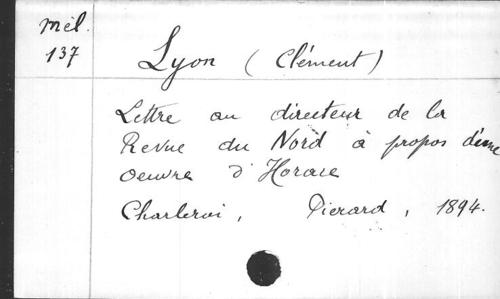 Mél.
137
Lyon (Clément)
Lettre au directeur de la
Revue du Nord à propos d'une
oeuvre d'Horace
Charleroi, Pierard, 1894.